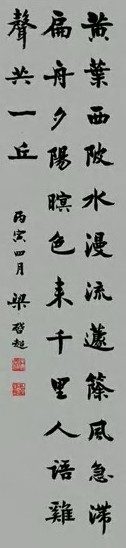 黃葉西陂水漫流蘧篨風急滯
扁舟夕陽暝色來千里人語雞
聲共一丘
丙寅四月 梁啓超